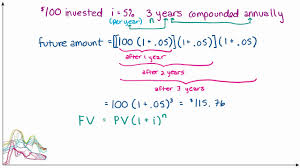 $100 invested i = 5%, 3 years compounded annually
(per year) n
future amount = [[100 (1 + .05)](1 + .05)](1 + .05)
after 1 year
after 2 years
after 3 years
= 100 (1 + .05)³ = $115.76
FV = PV(1 + i)ⁿ